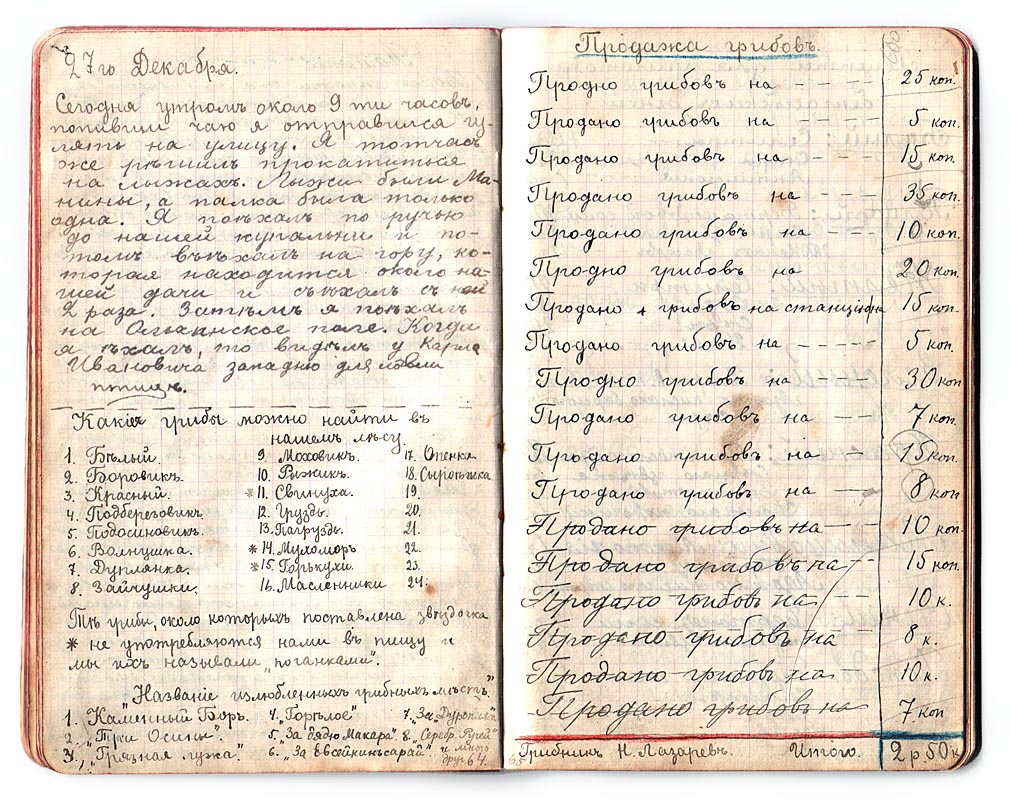 27го Декабря.
Сегодня утромъ около 9 ти часовъ,
попивши чаю я отправился гу-
лять на улицу. Я тотчасъ
же рѣшилъ прокатиться
на лыжахъ. Лыжи были Ма-
нины, а палка была только
одна. Я поѣхалъ по ручью
до нашей купальни и по-
томъ въѣхалъ на гору, ко-
торая находится около на-
шей дачи и съѣхалъ съ ней
2 раза. Затѣмъ я поѣхалъ
на Ольгинское поле. Когда
я ѣхалъ, то видѣлъ у Карла
Ивановича западню для ловли
птицъ.
Какіе грибы можно найти въ
нашемъ лѣсу.
1. Бѣлый.
2. Боровикъ.
3. Красный.
4. Подберезовикъ.
5. Подосиновикъ.
6. Волнушка.
7. Дуплянка.
8. Зайчушки.
9. Моховикъ.
10. Рыжикъ.
* 11. Свинуха.
12. Груздь.
13. Пагруздь.
* 14. Мухоморъ
* 15. Горькухи
16. Масленники
17. Опенка
18. Сыроѣжка
19.
20.
21.
22.
23.
24.
Тѣ грибы, около которыхъ поставлена звѣздочка
* не употребляются нами въ пищу и
мы ихъ называли „поганками".
„Названіе излюбленныхъ грибныхъ мѣстъ."
1. „Каменный Боръ.
2. „Три Осины"
3. „Грязная лужа."
4. „Горѣлое"
5. „За дядю Макара."
6. „За Евсейкинъ сарай".
7. „За
8. „Серебр. Ручей"
и много
друг.
64.
Продажа грибовъ.
Продно грибовъ на - - - - 25 коп.
Продано грибовъ на - - - - 5 коп.
Продано грибовъ на - - - - 15 коп.
Продано грибовъ на - - - 35 коп.
Продано грибовъ на - - - - 10 коп.
Продно грибовъ на 20 коп.
Продано + грибовъ на станціи 15 коп.
Продано грибовъ на - - - - - 5 коп.
Продно грибовъ на - - - - 30 коп
Продано грибовъ на - - - 7 коп.
Продано грибовъ на - - - 15 коп.
Продано грибовъ на - - - 8 коп
Продано грибовъ на - - - 10 коп.
Продано грибовъ на - - 15 коп.
Продано грибовъ на 10 к.
Продано грибовъ на 8 к.
Продано грибовъ на - 10 к.
Продано грибовъ на 7 коп
65. Грибникъ Н. Лазаревъ. Итого. 2 р. 50 к